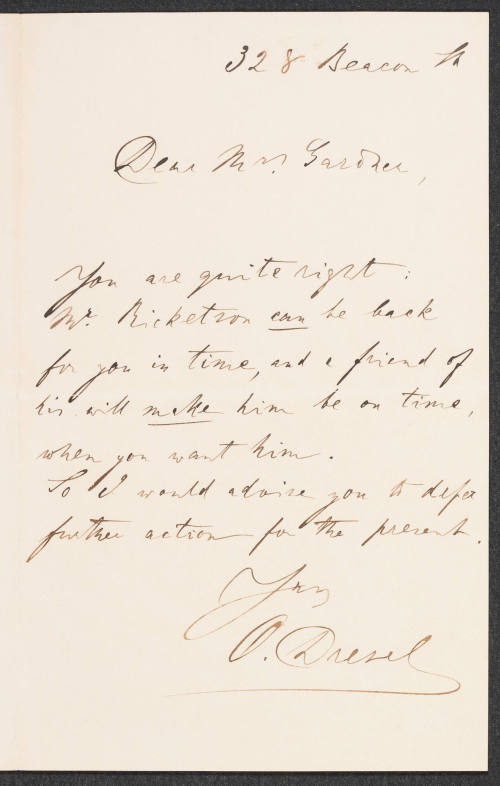 328 Beacon St
Dear Mrs. Gardner,
You are quite right:
Mr. Ricketson can be back
for you in time, and a friend of
his will make him be on time,
when you want him.
So I would advise you to defer
further action for the present.
Yrs
O. Dresel